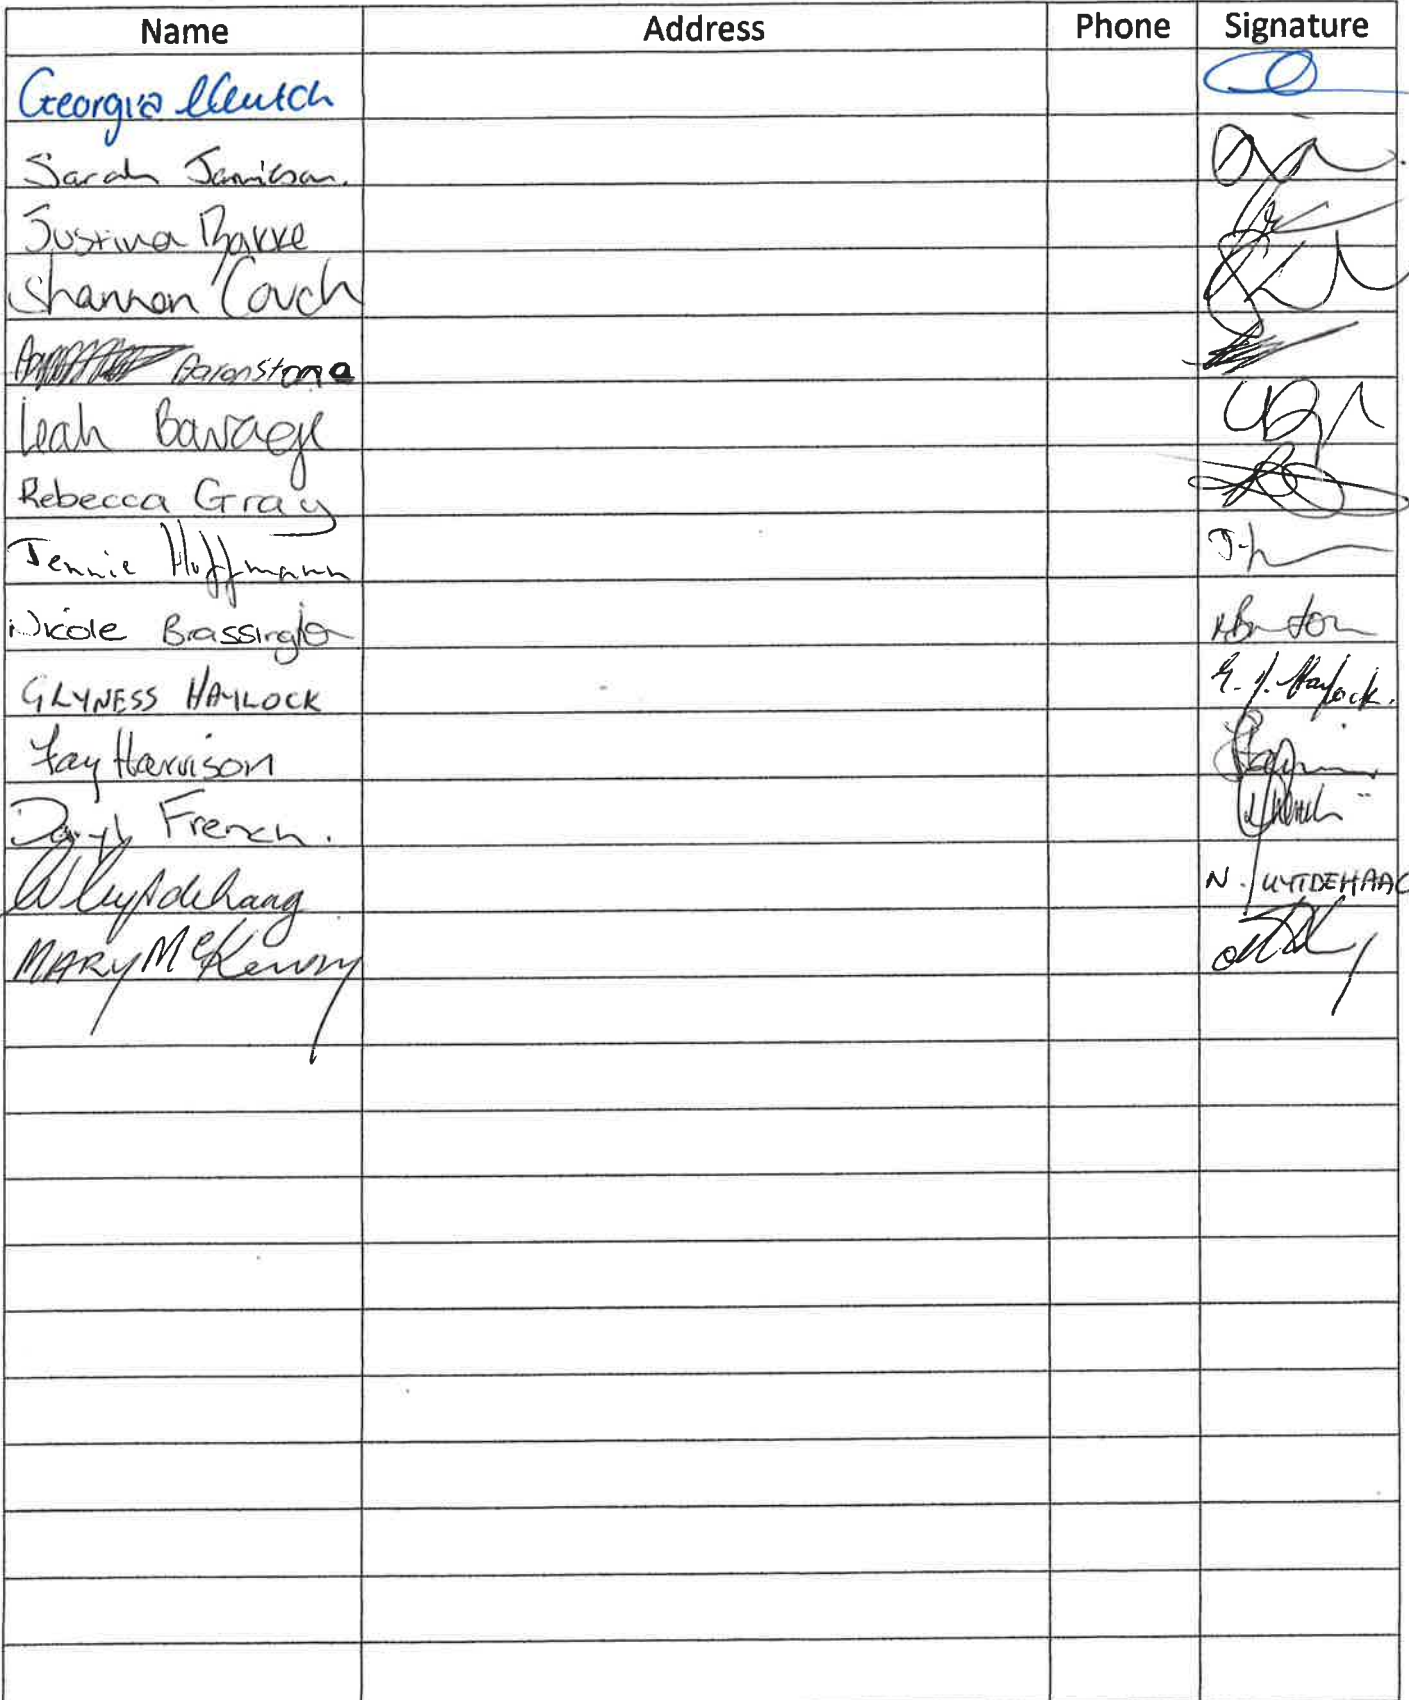 Name Address Phone Signature
Georgia
Sarah Jamieson.
Justina
Shannon Couch
Aaron Stone
Leah Bavage
Rebecca Gray
Jennie Hoffmann J.H
Nicole Brassington
GLYNESS HAYLOCK G. J. Haylock.
Fay Harrison
Daryl French.
N Uytdehaag N. UYTDEHAAG
MARY McKenny